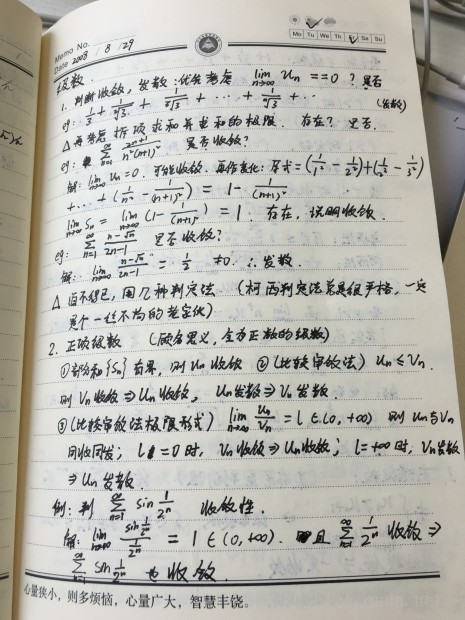 Memo No.
Date 2008 / 8 / 29
Mo Tu We Th Fr Sa Su
级数.
1. 判断收敛, 发散: 优先考虑 lim n→∞ Un == 0 ? 是否
(发散)
eg: 1/3 + 1/√3 + 1/∛3 + ··· + 1/ⁿ√3 + ··
△ 再考虑 拆项求和并求和的极限. 存在? 是否.
eg: ∑ n=1 ∞ (2n+1)/(n²(n+1)²) 是否收敛?
解: lim n→∞ Un = 0. 可能收敛. 再作变化: 原式 = (1/1² - 1/2²) + (1/2² - 1/3²)
+ ··· + (1/n² - 1/(n+1)²) = 1 - 1/(n+1)²
lim n→∞ Sn = lim n→∞ (1 - 1/(n+1)²) = 1. 存在, 说明收敛.
eg: ∑ n=1 ∞ (n-√n)/(2n-1) 是否收敛?
解: lim n→∞ (n-√n)/(2n-1) = 1/2 ≠0. ∴发散.
△ 迫不得已, 用几种判定法 (柯西判定法总是很严格, 一定
是个一丝不苟的老定伙)
2. 正项级数 (顾名思义, 全为正数的级数)
① 部分和{Sn} 有界, 则 Un 收敛 ② (比较审敛法) Un ≤ Vn.
则 Vn 收敛 ⇒ Un 收敛, Un 发散 ⇒ Vn 发散.
③ (比较审敛法极限形式) lim n→∞ Un/Vn = l ∈(0, +∞) 则 Un 与 Vn
同收同发; l = 0 时, Vn 收敛 ⇒ Un 收敛; l = +∞ 时, Vn 发散
⇒ Un 发散.
例: 判 ∑ n=1 ∞ sin 1/2ⁿ 收敛性.
解: lim n→∞ (sin 1/2ⁿ)/(1/2ⁿ) = 1 ∈ (0, +∞). 且 ∑ n=1 ∞ 1/2ⁿ 收敛 ⇒
∑ n=1 ∞ sin 1/2ⁿ 也收敛.
心量狭小，则多烦恼，心量广大，智慧丰饶。